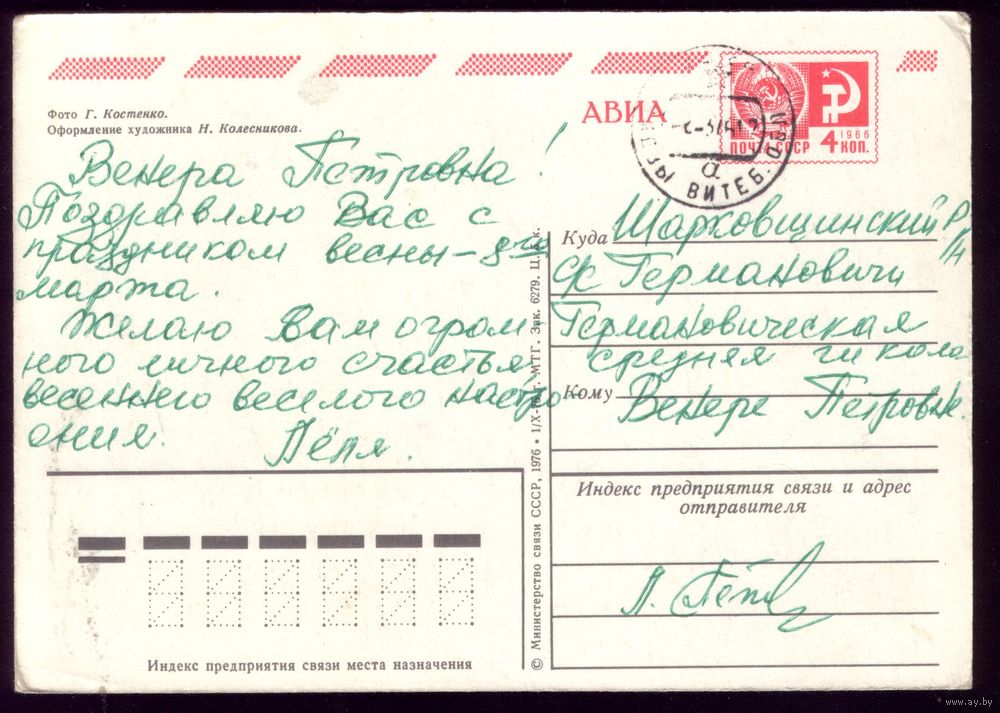 Фото Г. Костенко.
Оформление художника Н. Колесникова.
АВИА
1966
ПОЧТА СССР 4 КОП.
ВИТЕБ.
Венера Петровна!
Поздравляю Вас с
праздником весны – 8 
марта.
Желаю Вам огром-
ного личного счастья
весеннего веселого настро
ения.
Лёля.
Куда Шарковщинский р-/н
Германовичи
Германовическая
средняя школа
Кому Венере Петровне.
Индекс предприятия связи и адрес
отправителя
Индекс предприятия связи места назначения
© Министерство связи СССР, 1976 • МТГ. Зак. 6279.
www.ay.by